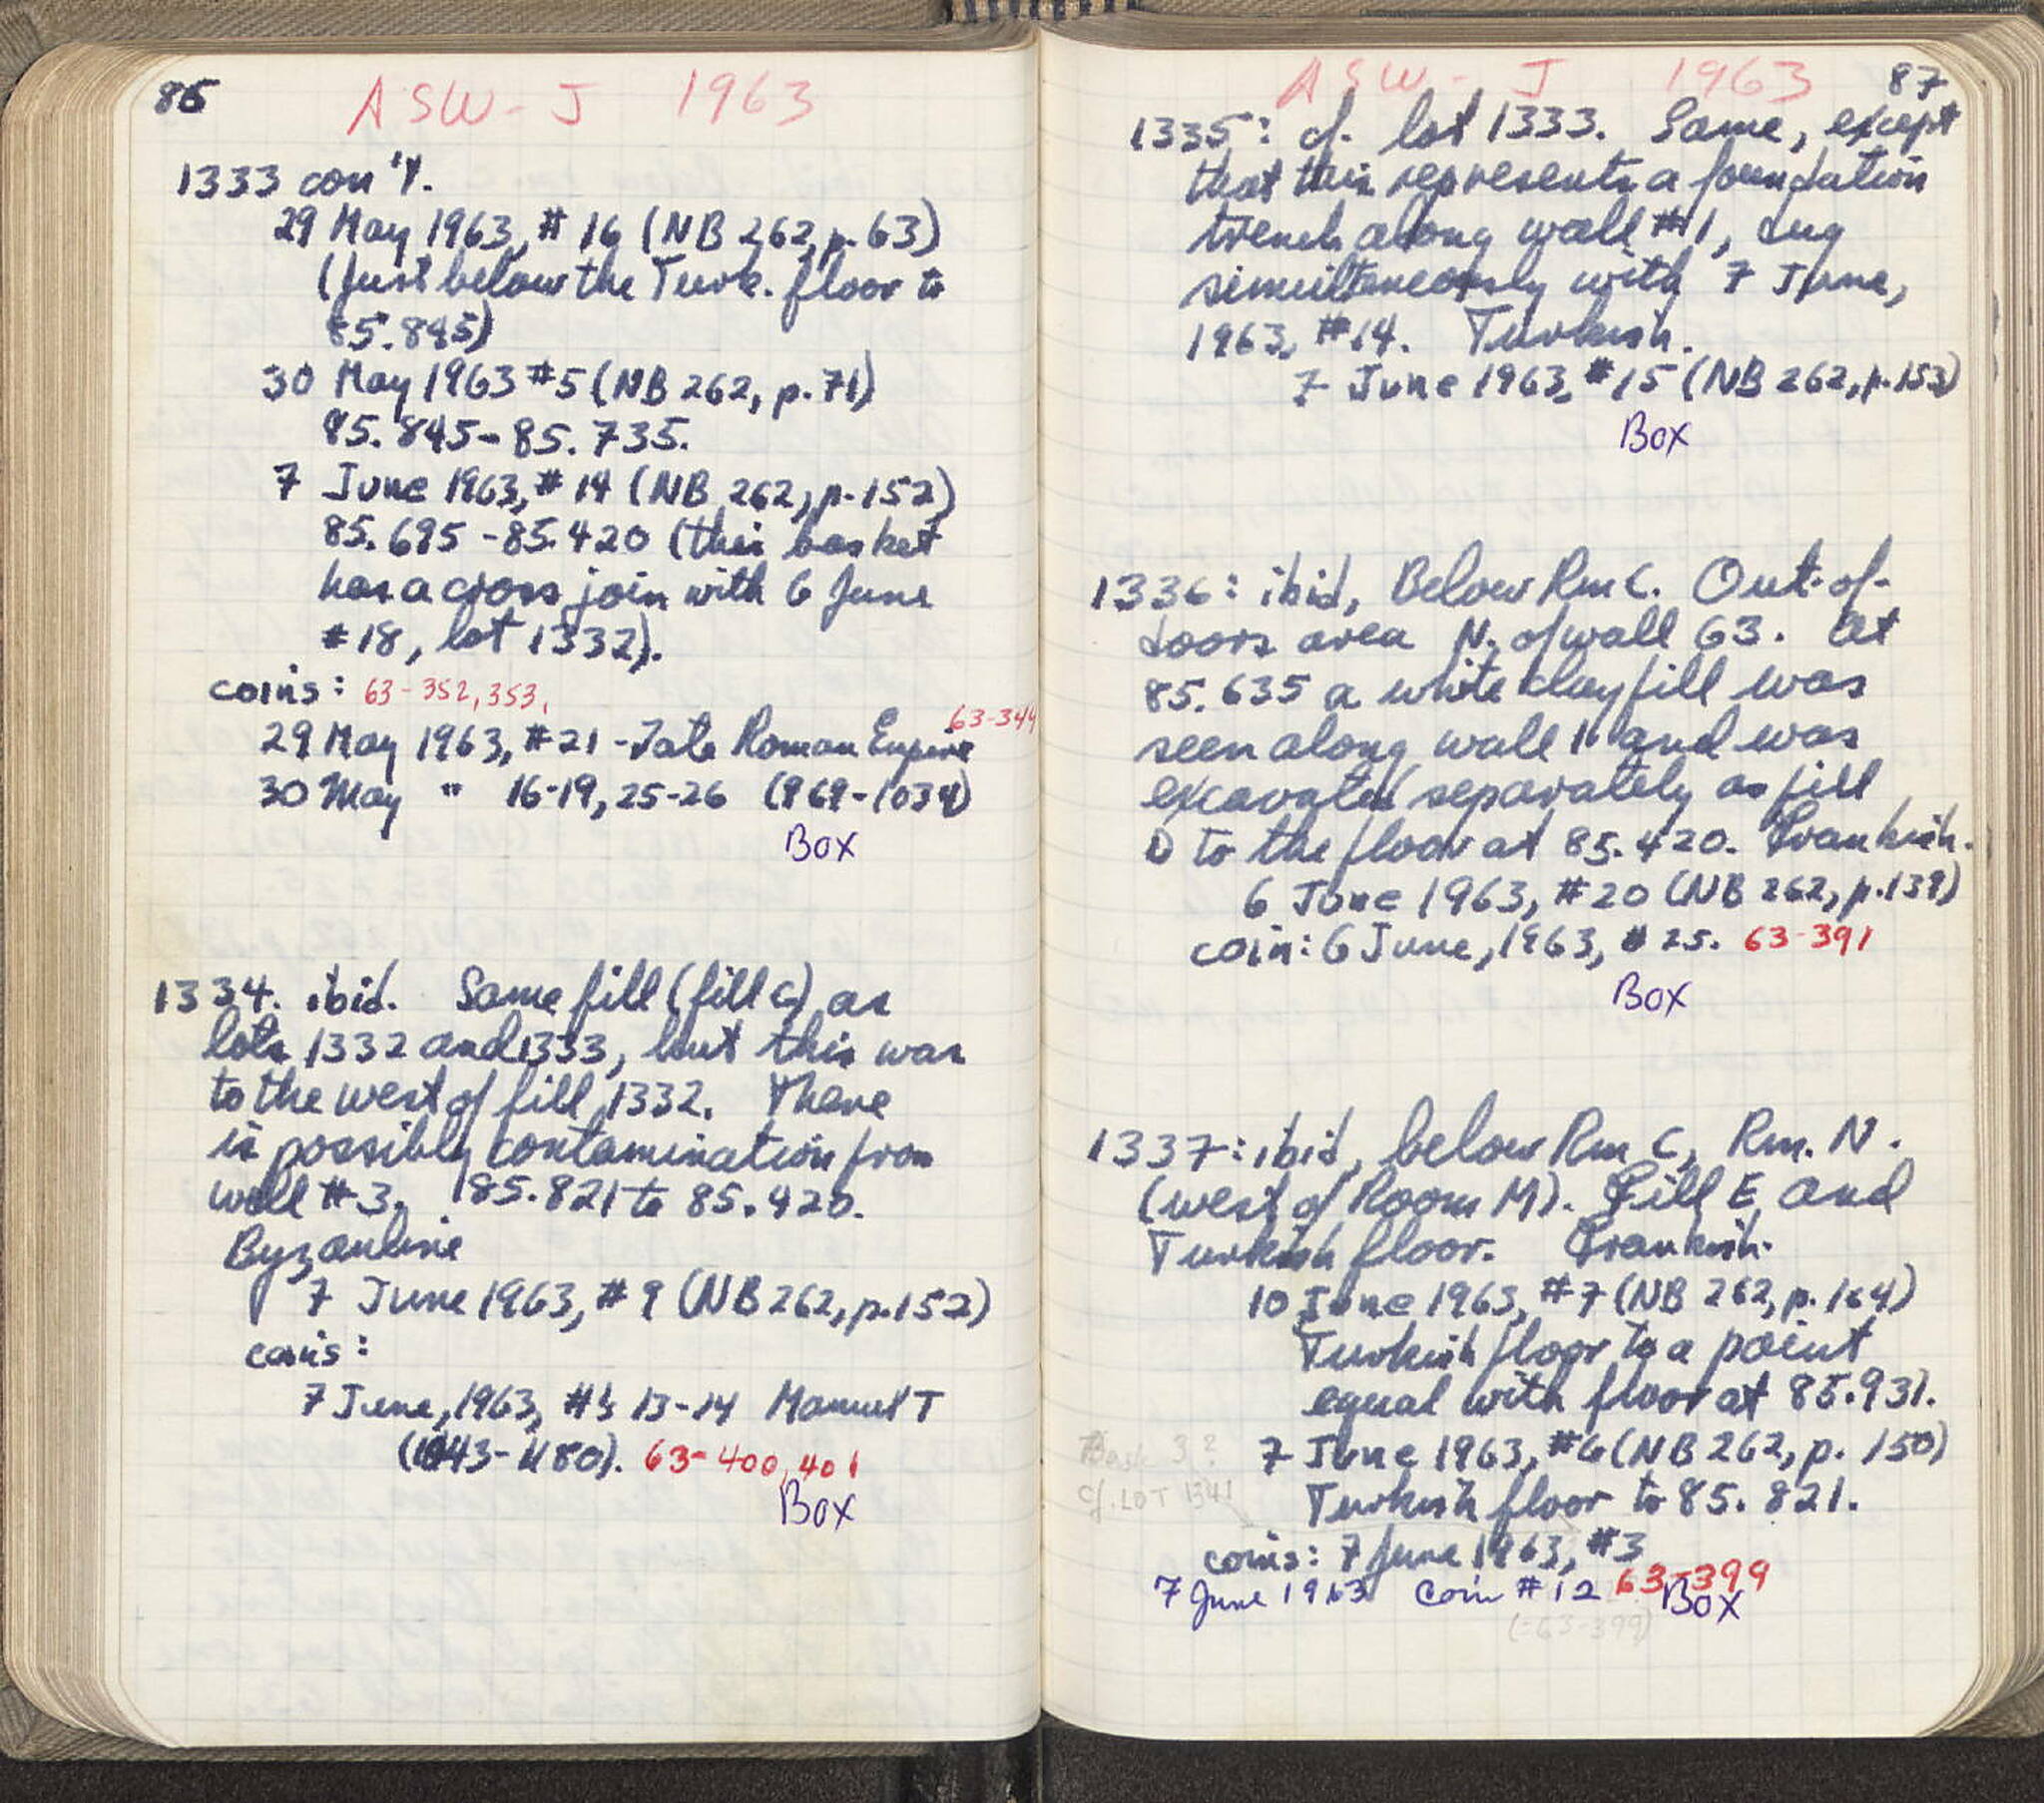 86
ASW-J 1963
1333 con't.
29 May 1963, # 16 (NB 262, p. 63)
(Just below the Turk. floor to
85.845)
30 May 1963 #5 (NB 262, p. 71)
85.845-85.735.
7 June 1963, # 14 (NB 262, p. 152)
85.695-85.420 (this basket
has a cross join with 6 June
#18, lot 1332).
coins: 63-352, 353,
63-344
29 May 1963, #21 - Late Roman Empire
30 May " 16-19, 25-26 (969-1034)
Box
1334. ibid. Same fill (fill C) as
lots 1332 and 1333, but this was
to the west of fill 1332. There
is possibly contamination from
wall #3. 85.821 to 85.420.
Byzantine
7 June 1963, # 9 (NB 262, p. 152)
coins:
7 June, 1963, #s 13-14 Manuel I
(1143-1180). 63-400, 401
Box
ASW-J 1963
87
1335: cf. lot 1333. Same, except
that this represents a foundation
trench along wall #1, dug
simultaneously with 7 June,
1963, #14. Turkish.
7 June 1963, #15 (NB 262, p. 153)
Box
1336: ibid, Below Rm C. Out-of-
doors area N. of wall 63. At
85.635 a white clay fill was
seen along wall 16 and was
excavated separately as fill
D to the floor at 85.420. Frankish.
6 June 1963, #20 (NB 262, p. 139)
coin: 6 June, 1963, # 25. 63-391
Box
1337: ibid, below Rm C, Rm. N.
(west of Room M). Fill E and
Turkish floor. Frankish.
10 June 1963, #7 (NB 262, p. 164)
Turkish floor to a point
equal with floor at 85.931.
7 June 1963, #6 (NB 262, p. 150)
Turkish floor to 85.821.
Bask 3?
cf. LOT 1341
coins: 7 June 1963, #3
7 June 1963 Coin #12 63-399
Box
(=63-399)